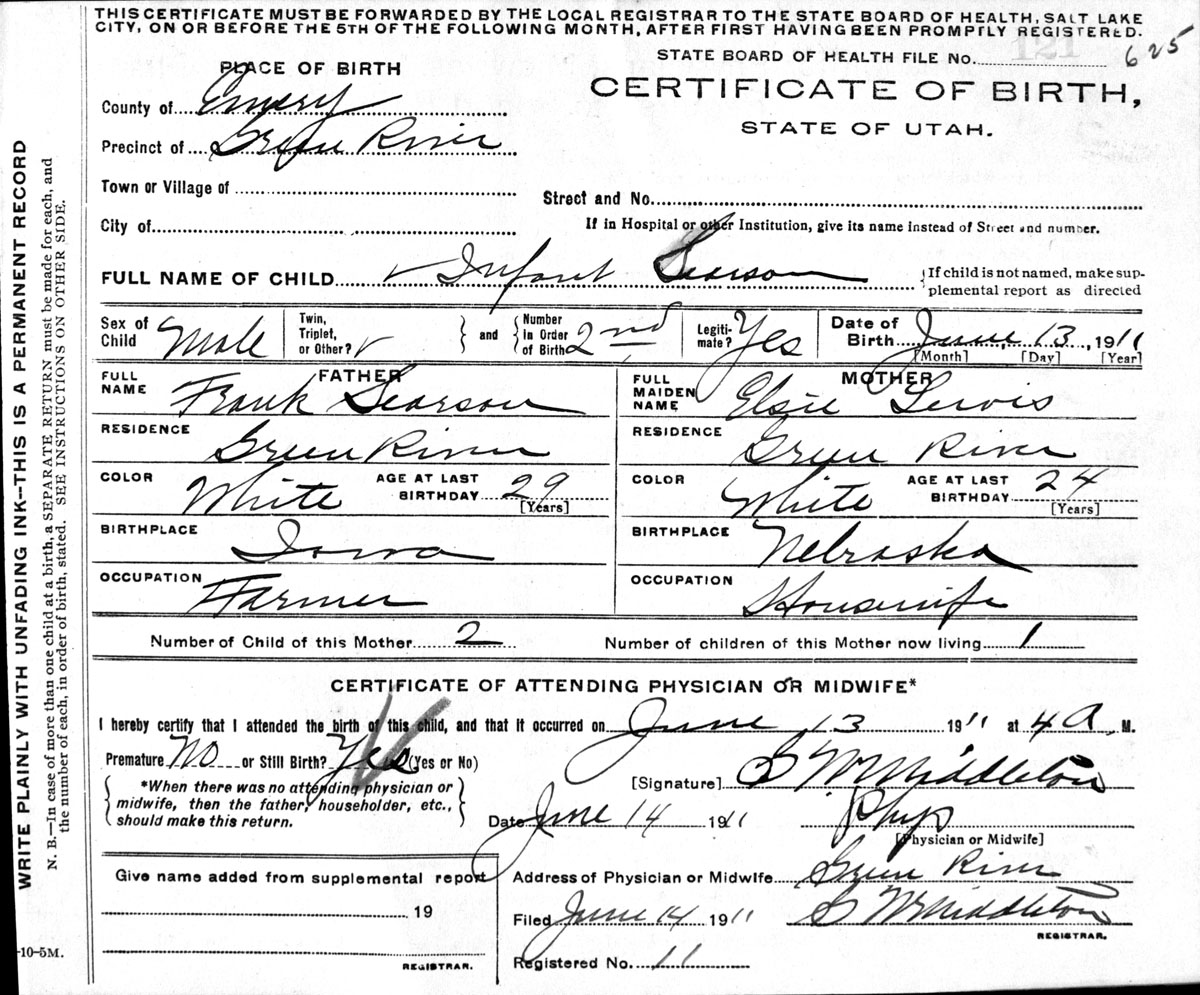 THIS CERTIFICATE MUST BE FORWARDED BY THE LOCAL REGISTRAR TO THE STATE BOARD OF HEALTH, SALT LAKE
CITY, ON OR BEFORE THE 5TH OF THE FOLLOWING MONTH, AFTER FIRST HAVING BEEN PROMPTLY REGISTERED.
121
STATE BOARD OF HEALTH FILE No. 625
PLACE OF BIRTH
CERTIFICATE OF BIRTH,
STATE OF UTAH.
County of Emery
Precinct of Green River
Town or Village of
Street and No.
City of
If in Hospital or other Institution, give its name instead of Street and number.
FULL NAME OF CHILD Infant Searson
If child is not named, make sup-
plemental report as directed
Sex of Child Male
Twin, Triplet, or Other?
and
Number in Order of Birth 2nd
Legiti-mate? Yes
Date of Birth June 13, 1911
[Month] [Day] [Year]
FATHER
FULL NAME Frank Searson
RESIDENCE Green River
COLOR White AGE AT LAST BIRTHDAY 29
[Years]
BIRTHPLACE Iowa
OCCUPATION Farmer
MOTHER
FULL MAIDEN NAME Elsie Lewis
RESIDENCE Green River
COLOR White AGE AT LAST BIRTHDAY 24
[Years]
BIRTHPLACE Nebraska
OCCUPATION Housewife
Number of Child of this Mother 2
Number of children of this Mother now living 1
CERTIFICATE OF ATTENDING PHYSICIAN OR MIDWIFE*
I hereby certify that I attended the birth of this child, and that it occurred on June 13 1911 at 4 A. M.
Premature No or Still Birth? Yes (Yes or No)
*When there was no attending physician or
midwife, then the father, householder, etc.,
should make this return.
[Signature] Middleton
Date June 14 1911 Phys
[Physician or Midwife]
Give name added from supplemental report
19
REGISTRAR.
Address of Physician or Midwife Green River
Filed June 14 1911 Middleton
REGISTRAR.
Registered No. 11
WRITE PLAINLY WITH UNFADING INK—THIS IS A PERMANENT RECORD
N. B.—In case of more than one child at a birth, a SEPARATE RETURN must be made for each, and
the number of each, in order of birth, stated. SEE INSTRUCTIONS ON OTHER SIDE.
-10-5M.